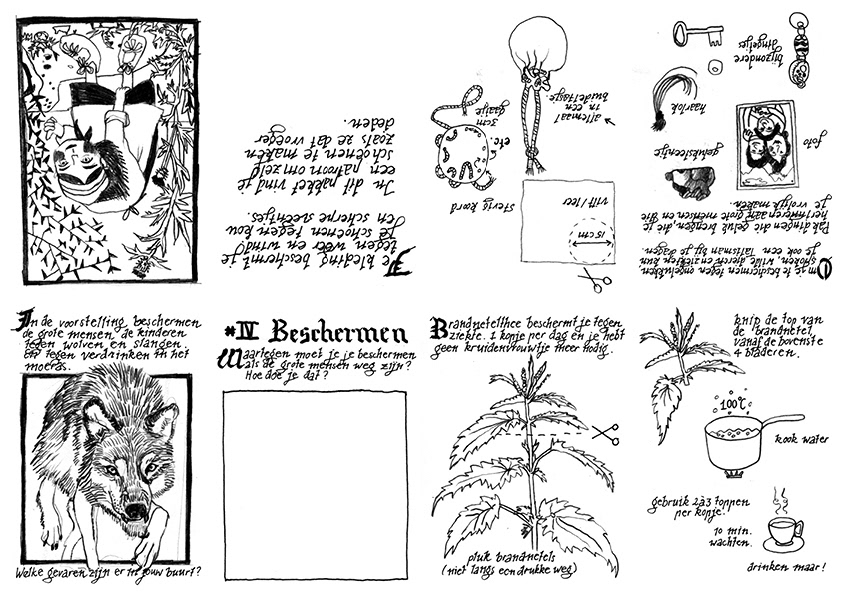 Om je te beschermen tegen ongelukken,
spoken, wilde dieren en ziekten kun
je ook een talisman bij je dragen.
Pak dingen die geluk brengen, die je
herinneren aan grote mensen en die
je vrolijk maken.
foto
geluksteentje
haarlok
bijzondere
dingetjes
15cm
vilt / leer
stevig koord
etc.
3cm
gaatje
allemaal
in een
buideltasje.
Je kleding beschermt je
tegen weer en wind
je schoenen tegen kou
en scherpe steentjes.
In dit pakket vind je
een patroon om zelf
schoenen te maken
zoals ze dat vroeger
deden.
In de voorstelling beschermen
de grote mensen de kinderen
tegen wolven en slangen.
en tegen verdrinken in het
moeras.
Welke gevaren zijn er in jouw buurt?
#IV Beschermen
Waartegen moet je je beschermen
als de grote mensen weg zijn?
Hoe doe je dat?
Brandnetelthee beschermt je tegen
ziekte. 1 kopje per dag en je hebt
geen kruidenvrouwtje meer nodig.
pluk brandnetels
(niet langs een drukke weg)
knip de top van
de brandnetel
vanaf de bovenste
4 bladeren.
100°C
kook water
gebruik 2 à 3 toppen
per kopje.
10 min.
wachten.
drinken maar!